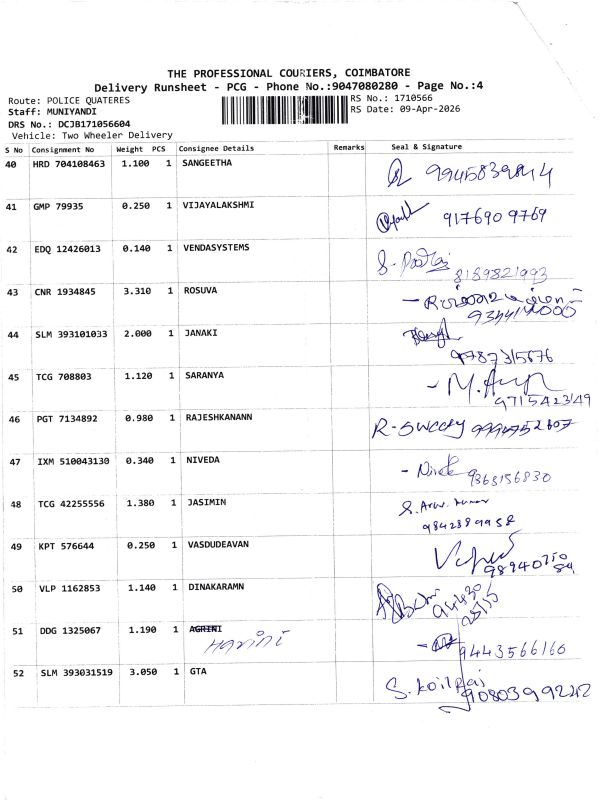 THE PROFESSIONAL COURIERS, COIMBATORE
Delivery Runsheet - PCG - Phone No.:9047080280 - Page No.:4
Route: POLICE QUATERES RS No.: 1710566
Staff: MUNIYANDI RS Date: 09-Apr-2026
DRS No.: DCJB171056604
Vehicle: Two Wheeler Delivery
S No Consignment No Weight PCS Consignee Details Remarks Seal & Signature
40 HRD 704108463 1.100 1 SANGEETHA
41 GMP 79935 0.250 1 VIJAYALAKSHMI 9176909769
42 EDQ 12426013 0.140 1 VENDASYSTEMS
8139821993
43 CNR 1934845 3.310 1 ROSUVA
44 SLM 393101033 2.000 1 JANAKI
9787315676
45 TCG 708803 1.120 1 SARANYA
9715423149
46 PGT 7134892 0.980 1 RAJESHKANANN
47 IXM 510043130 0.340 1 NIVEDA
9363156830
48 TCG 42255556 1.380 1 JASIMIN
9842389958
49 KPT 576644 0.250 1 VASDUDEAVAN
50 VLP 1162853 1.140 1 DINAKARAMN
51 DDG 1325067 1.190 1 AGRINI
Harini 9443566160
52 SLM 393031519 3.050 1 GTA
9080399242